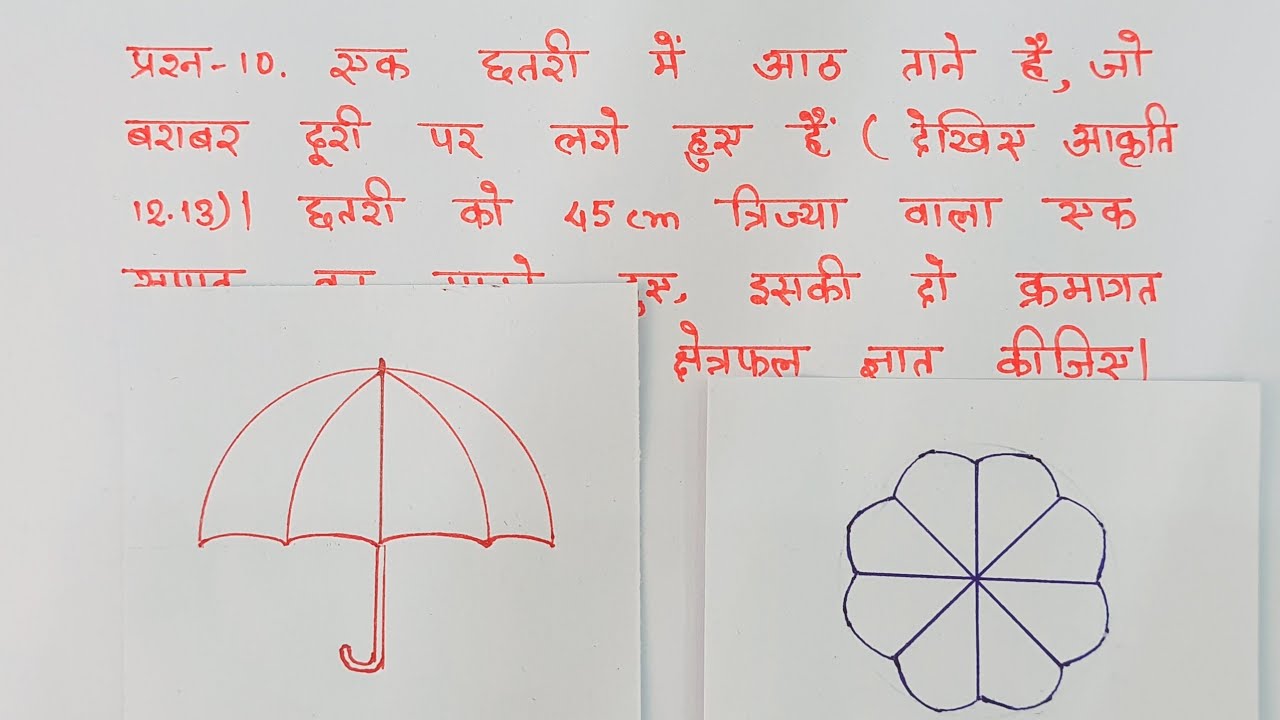 प्रश्न-10. एक छतरी में आठ ताने है, जो
बराबर दूरी पर लगे हुए हैं ( देखिए आकृति
12.13)। छतरी को 45 cm त्रिज्या वाला एक
हुए, इसकी दो क्रमागत
क्षेत्रफल ज्ञात कीजिए।